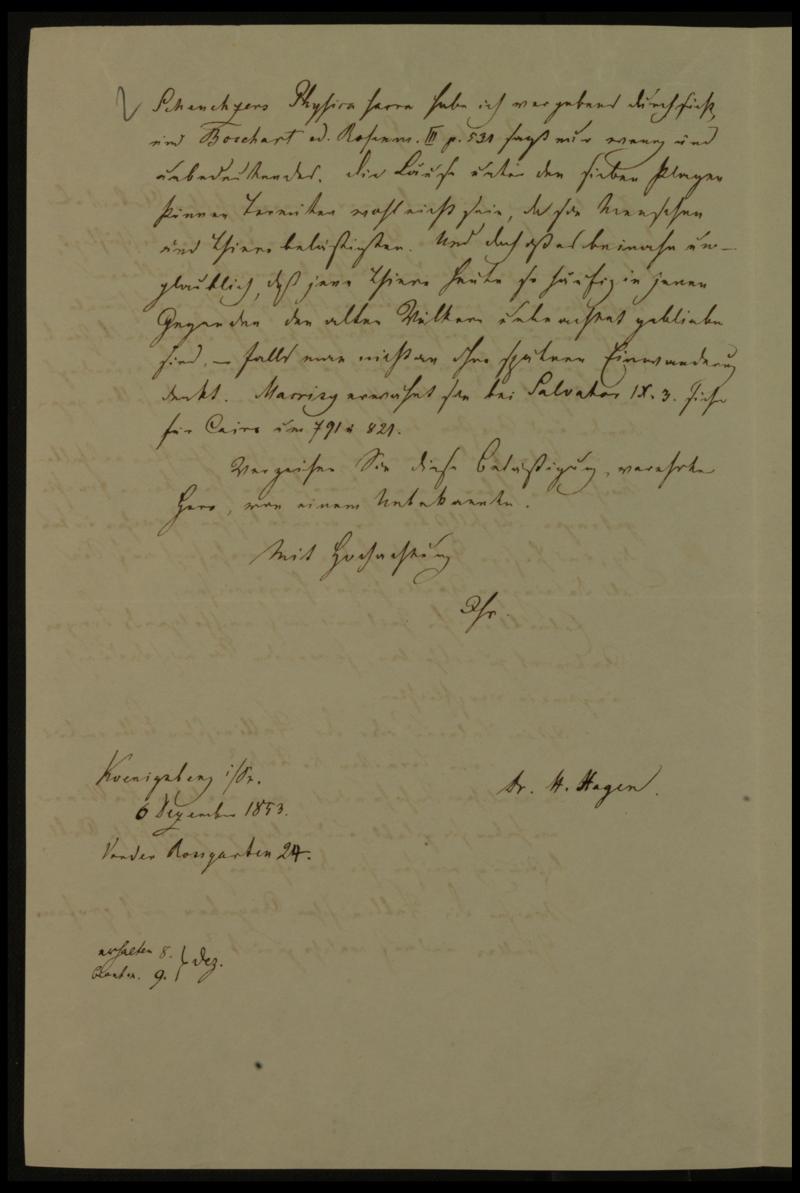 Scheuchzers Physica sacra habe ich vergebens durchsucht,
und Bochart ed. Rosenm. III p. 531 sagt nur wenig und
unbedeutendes. Die Läuse unter den sieben Plagen
können Termiten wohl nicht sein, da sie Menschen
und Thiere belästigten. Und doch ist es beinahe un-
glaublich, daß jene Thiere heute so häufig in jenen
Gegenden den alten Völkern unbeachtet geblieben
sind, – falls man nicht an ihre spätere Einwanderung
denkt. Macrizy erwähnt sie bei Salvator IX. 3. siehe
für Cairo um 791 & 821.
Verzeihen Sie diese Belästigung, verehrter
Herr, von einem Unbekannten.
Mit Hochachtung
Ihr
Koenigsberg i/Pr.
Dr. H. Hagen.
6 Dezember 1853.
Vorder Rossgarten 24.
erhalten 8.
9. } Dez.